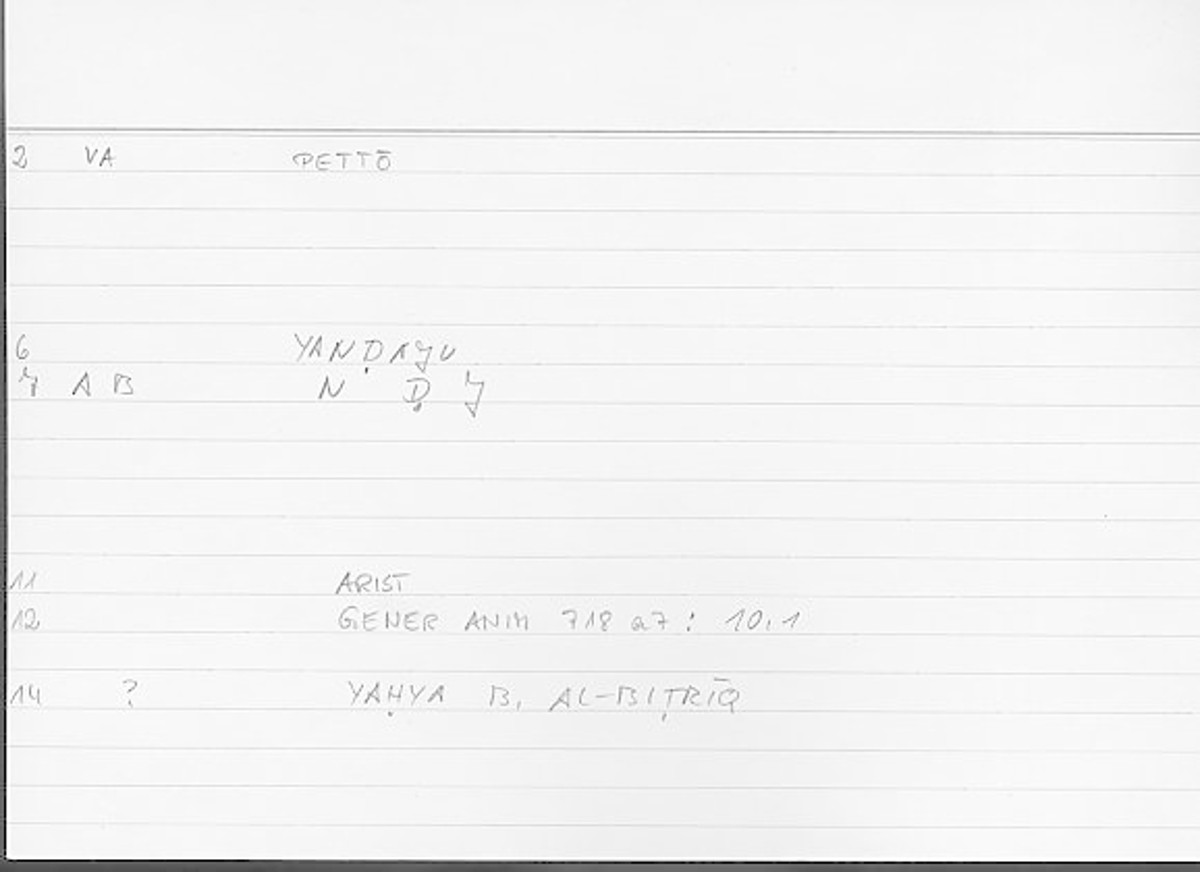 2 VA PETTŌ
6 YANḌAJU
7 A B N Ḍ J
11 ARIST
12 GENER ANIM 718 a7 : 10,1
14 ? YAḤYA B. AL-BIṬRĪQ